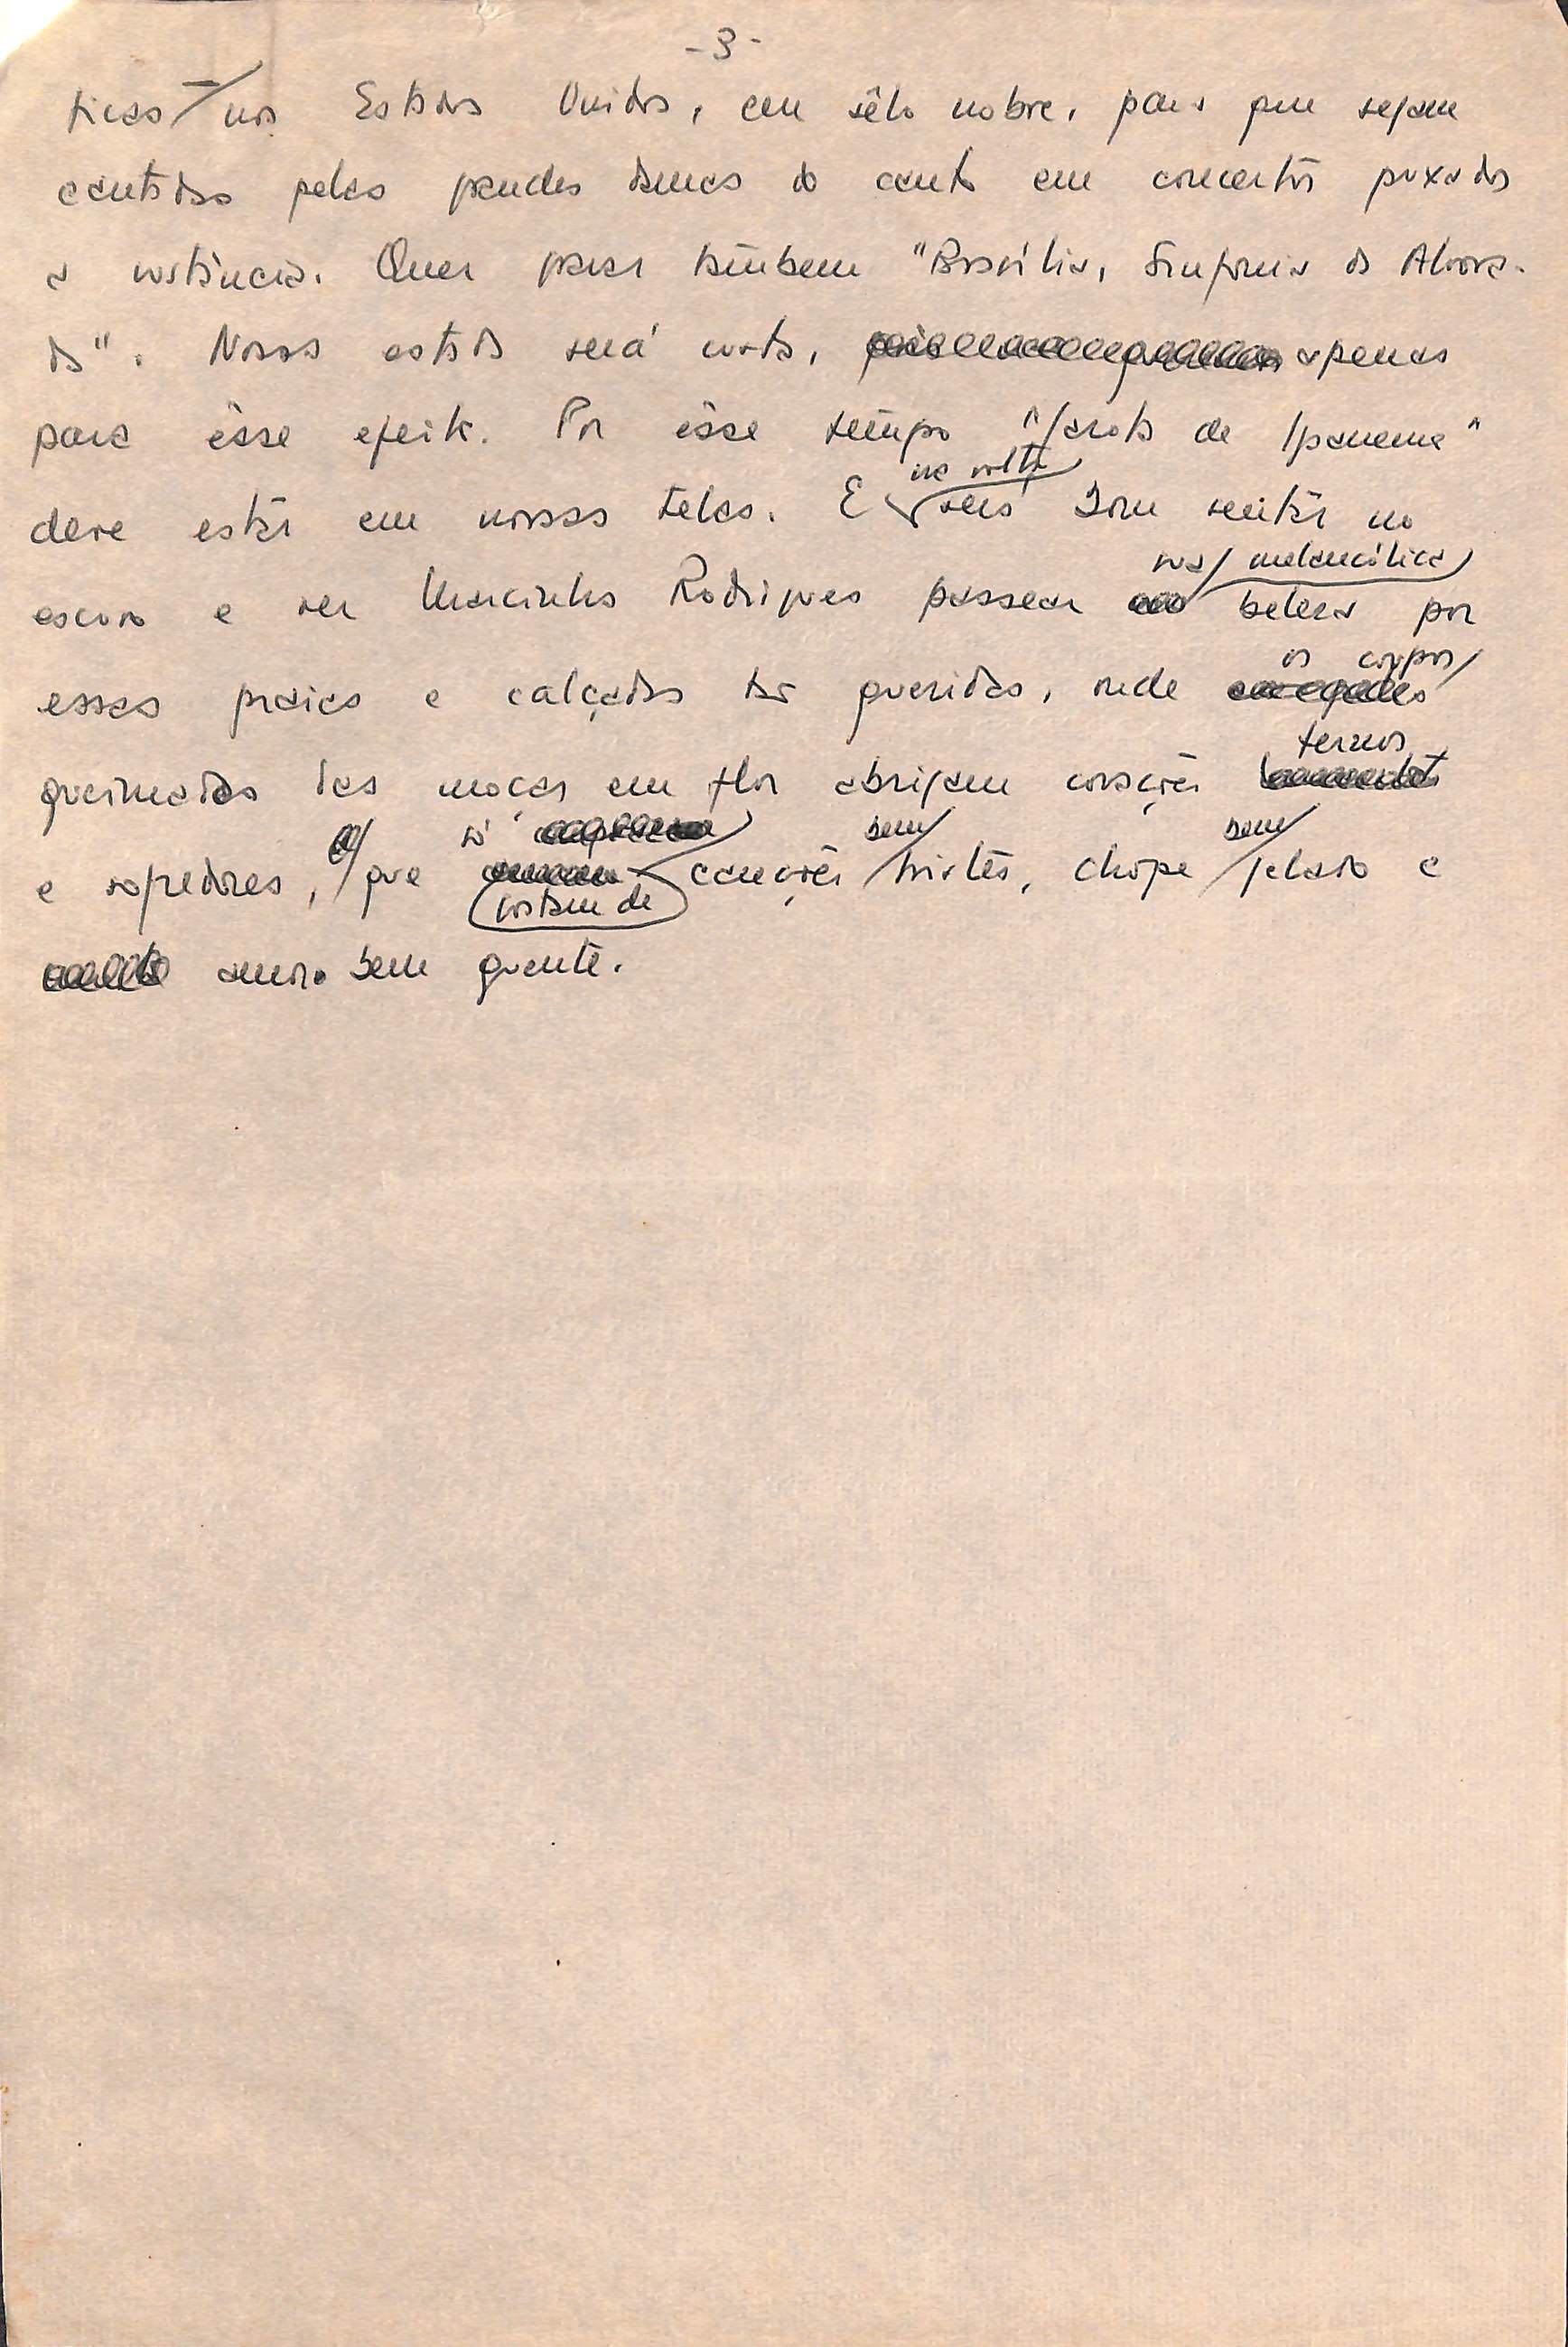 -3-
ticas — nos Estados Unidos, em sêlo nobre, para que sejam
cantadas pelas grandes damas do canto em concertos puxados
a substância. Quer gravar também "Brasília, Sinfonia da Alvora-
da". Nossa estada será curta, apenas
para êsse efeito. Por êsse tempo "Garota de Ipanema"
deve estar em nossas telas. E na volta será bom sentar no
escuro e ver Marcinha Rodrigues passear sua melancólica beleza por
essas praias e calçadas tão queridas, onde os corpos
queimados das moças em flor abrigam corações ternos
e sofredores, que só gostam de canções bem tristes, chope bem gelado e
amor bem quente.